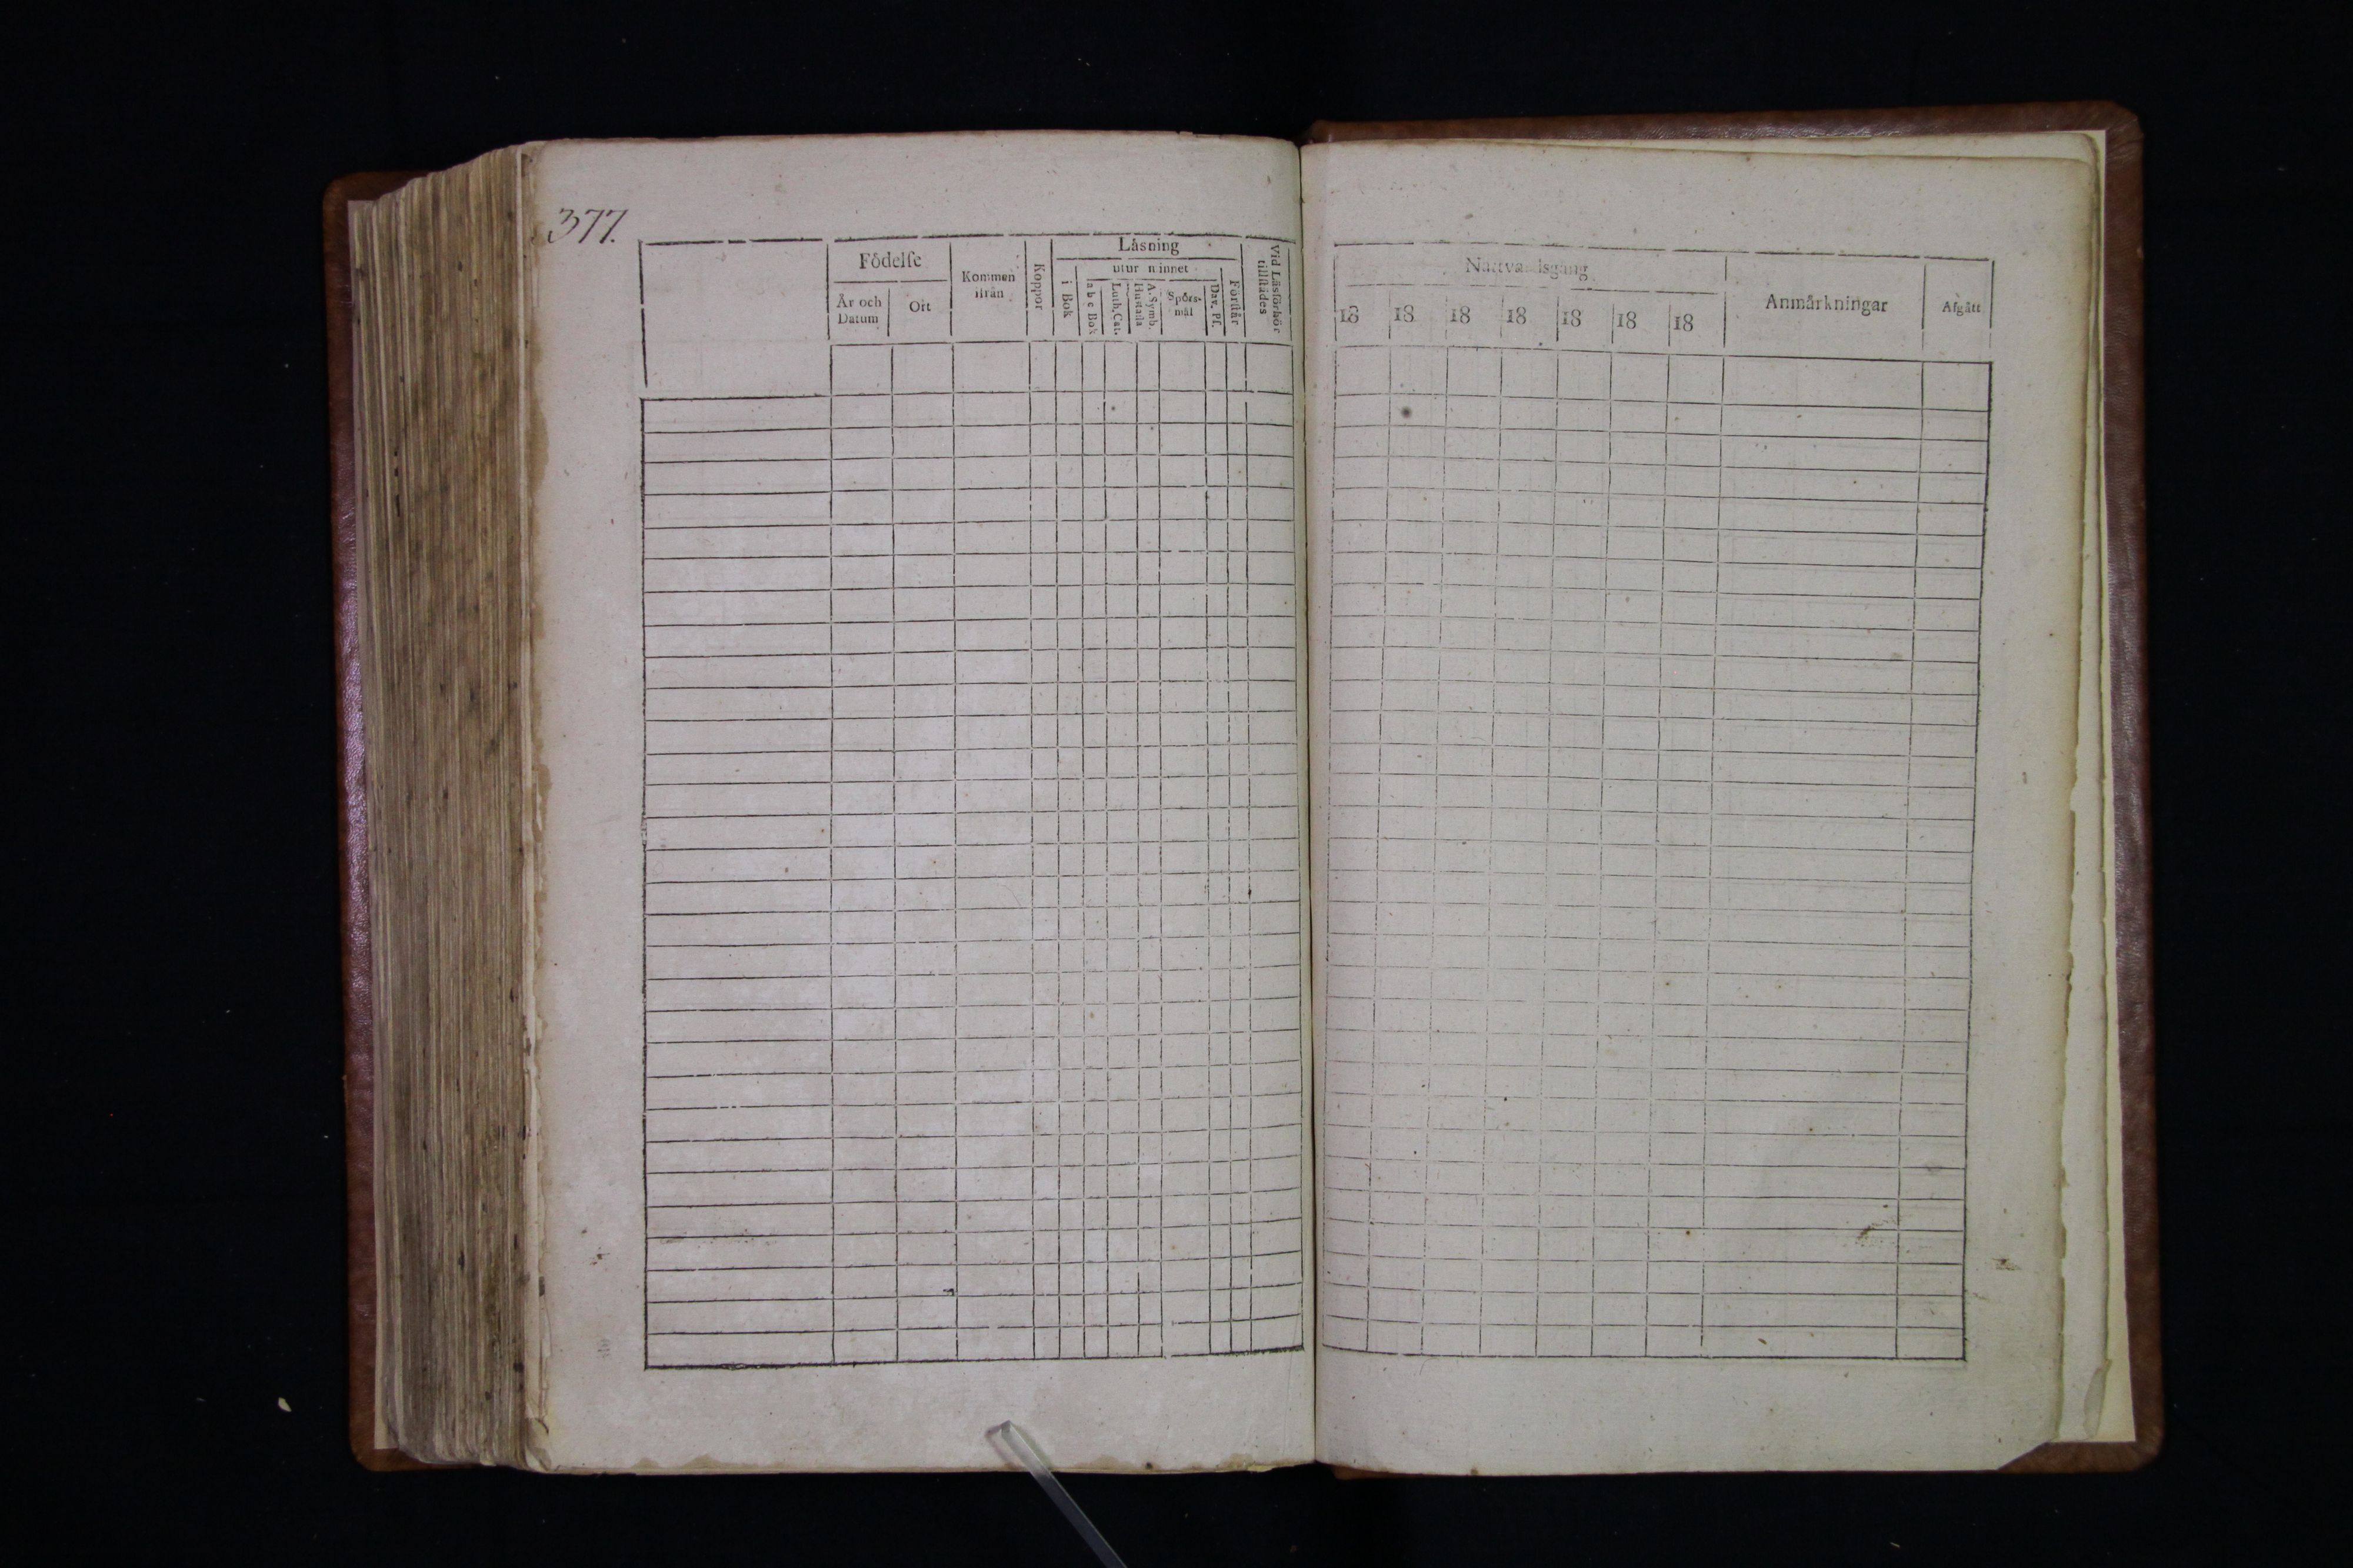 377.
Födelse
År och Datum
Ort
Kommen ifrån
Koppor
Läsning
i Bok
utur minnet
a b c Bok
Luth. Cat.
A. Symb. Hustafla
Spörsmål
Dav. Ps.
Förstår
Vid Läsförhör tillstädes
Nattvardsgång
18 18 18 18 18 18 18
Anmärkningar
Afgått